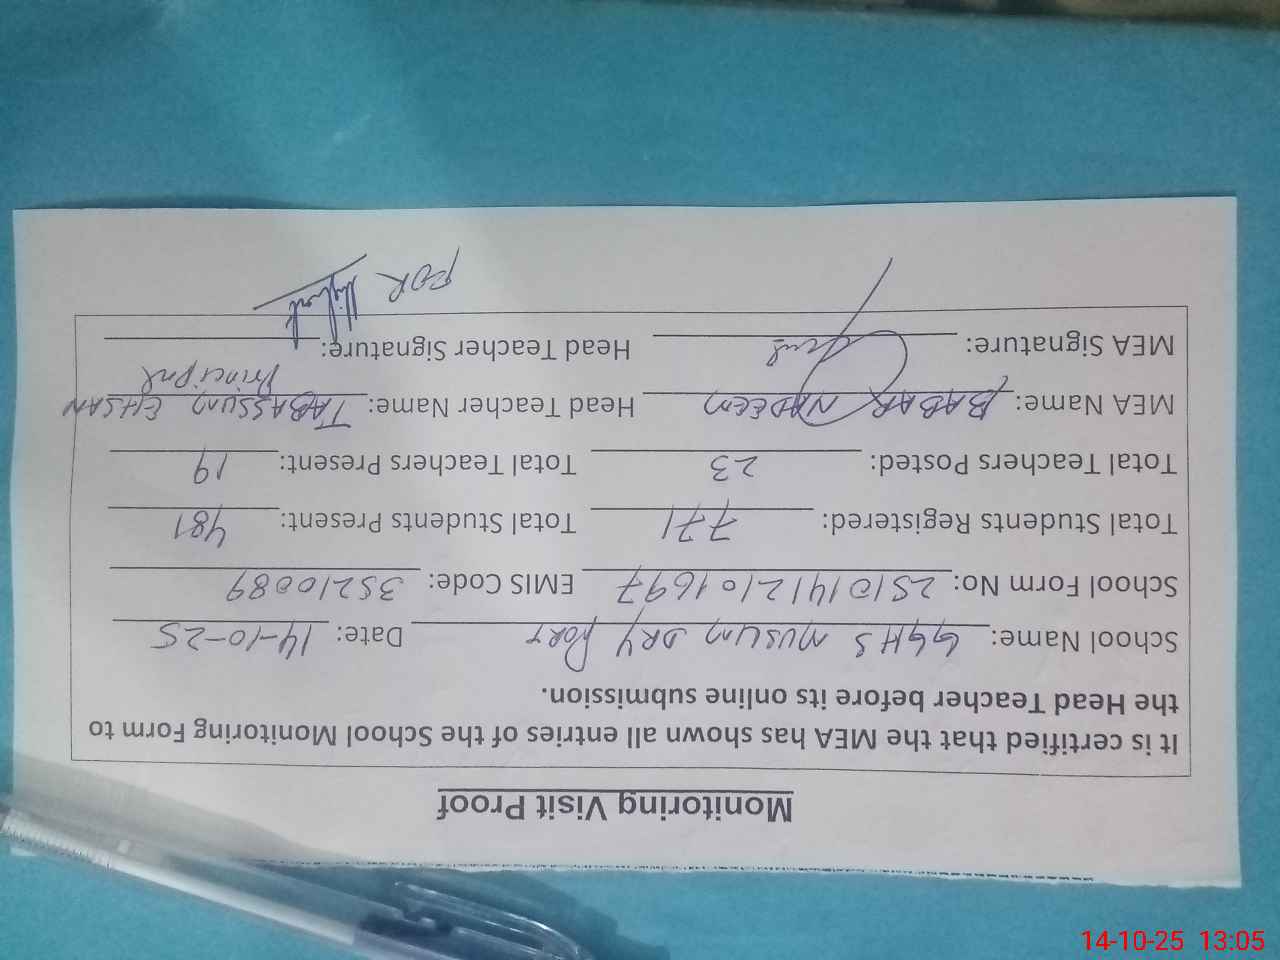 Monitoring Visit Proof
It is certified that the MEA has shown all entries of the School Monitoring Form to
the Head Teacher before its online submission.
School Name: GGHS MUSLIM DRY PORT Date: 14-10-25
School Form No: 25101412101697 EMIS Code: 35210089
Total Students Registered: 771 Total Students Present: 481
Total Teachers Posted: 23 Total Teachers Present: 19
MEA Name: BABAR NADEEM Head Teacher Name: TABASSUM EHSAN
Principal
MEA Signature: Head Teacher Signature:
FOR
14-10-25 13:05